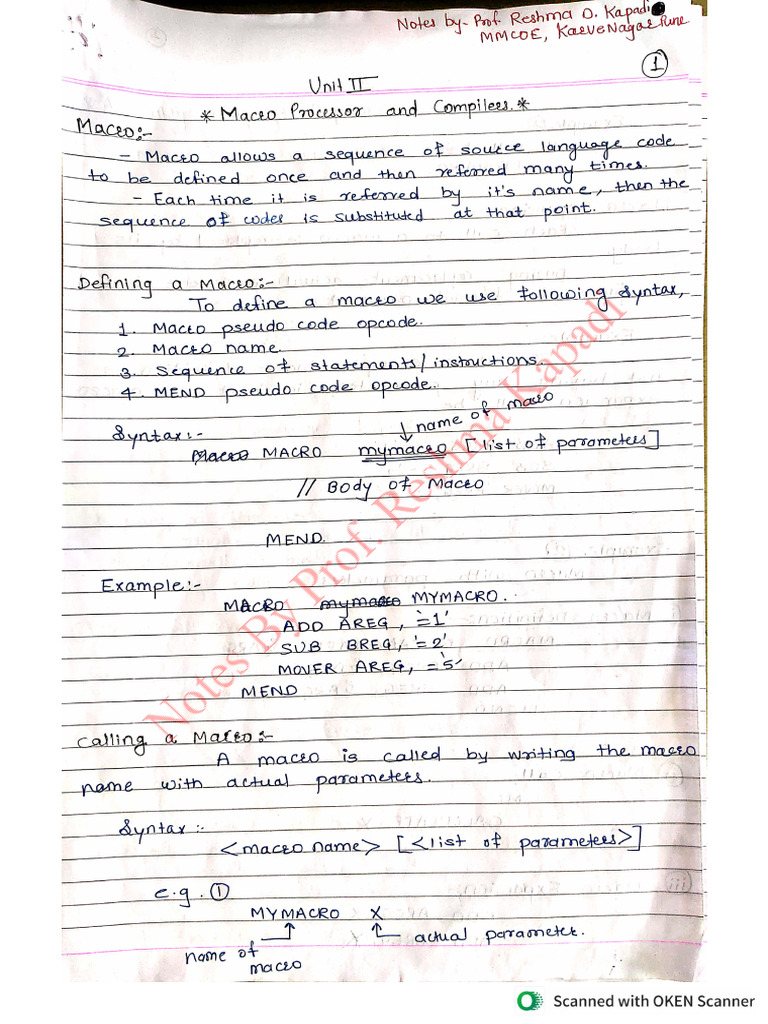 Notes by- Prof. Reshma D. Kapadi
MMCOE, KarveNagar Pune
1
Unit II
* Macro Processor and Compilers. *
Macro:-
- Macro allows a sequence of source language code
to be defined once and then referred many times.
- Each time it is referred by it's name, then the
sequence of codes is substituted at that point.
Defining a Macro:-
To define a macro we use following syntax,
1. Macro pseudo code opcode.
2. Macro name.
3. Sequence of statements/instructions.
4. MEND pseudo code opcode.
name of macro
Syntax:-
Macro MACRO mymacro [list of parameters]
// Body of Macro
MEND.
Example:-
MACRO mymacro MYMACRO.
ADD AREG, '=1'
SUB BREG, '=2'
MOVER AREG, ='5'
MEND
Calling a Macro:-
A macro is called by writing the macro
name with actual parameters.
Syntax:-
<macro name> [<list of parameters>]
e.g. 1
MYMACRO X
name of
macro
actual parameter.
Notes By Prof. Reshma Kapadi
Scanned with OKEN Scanner